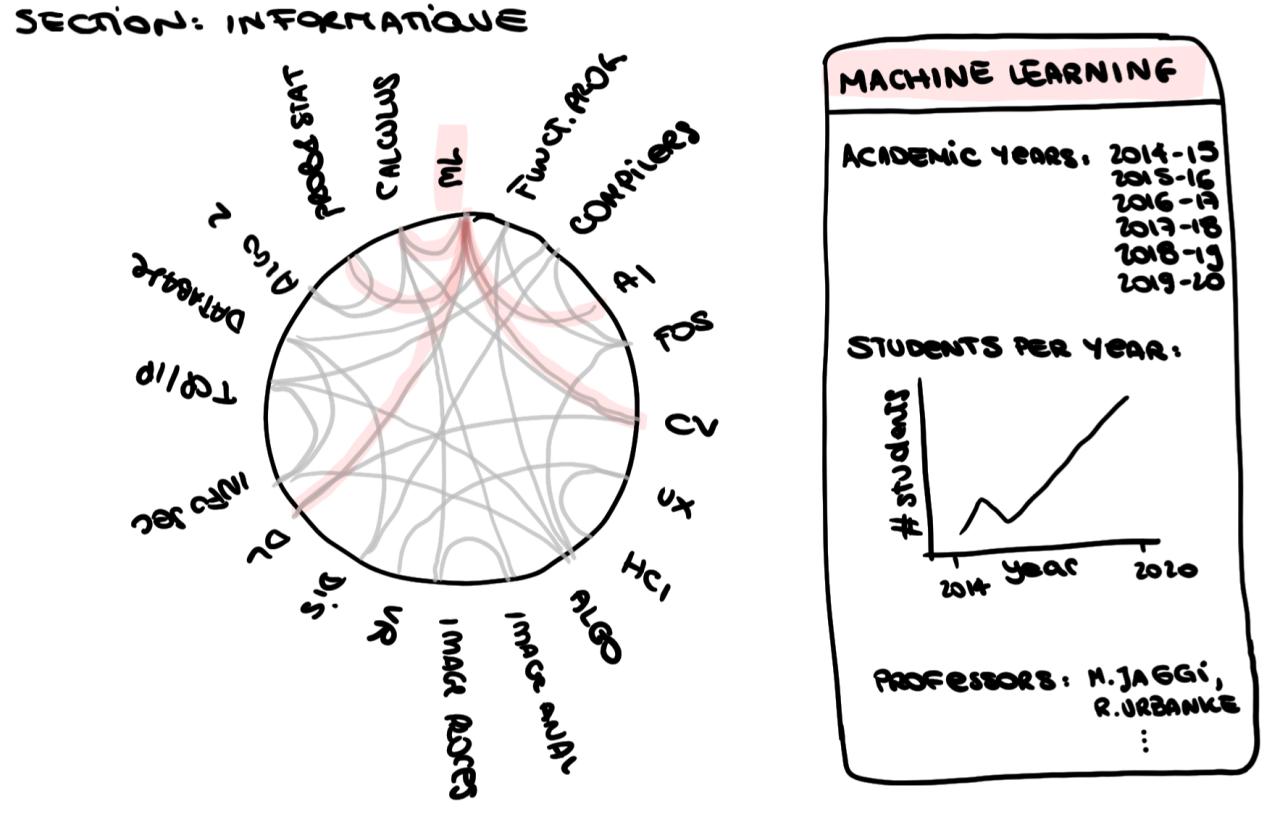 SECTION: INFORMATIQUE
ML
FUNCT. PROG
COMPILERS
AI
FOS
CV
UX
HCI
ALGO
IMAGE ANAL
IMAGE PROCES
VR
D.S
DL
INFO SEC
TCP/IP
DATABASE
ALGO 2
PROB & STAT
CALCULUS
MACHINE LEARNING
ACADEMIC YEARS: 2014-15
2015-16
2016-17
2017-18
2018-19
2019-20
STUDENTS PER YEAR:
# students
2014
year
2020
PROFESSORS: M.JAGGI,
R.URBANKE
⋮